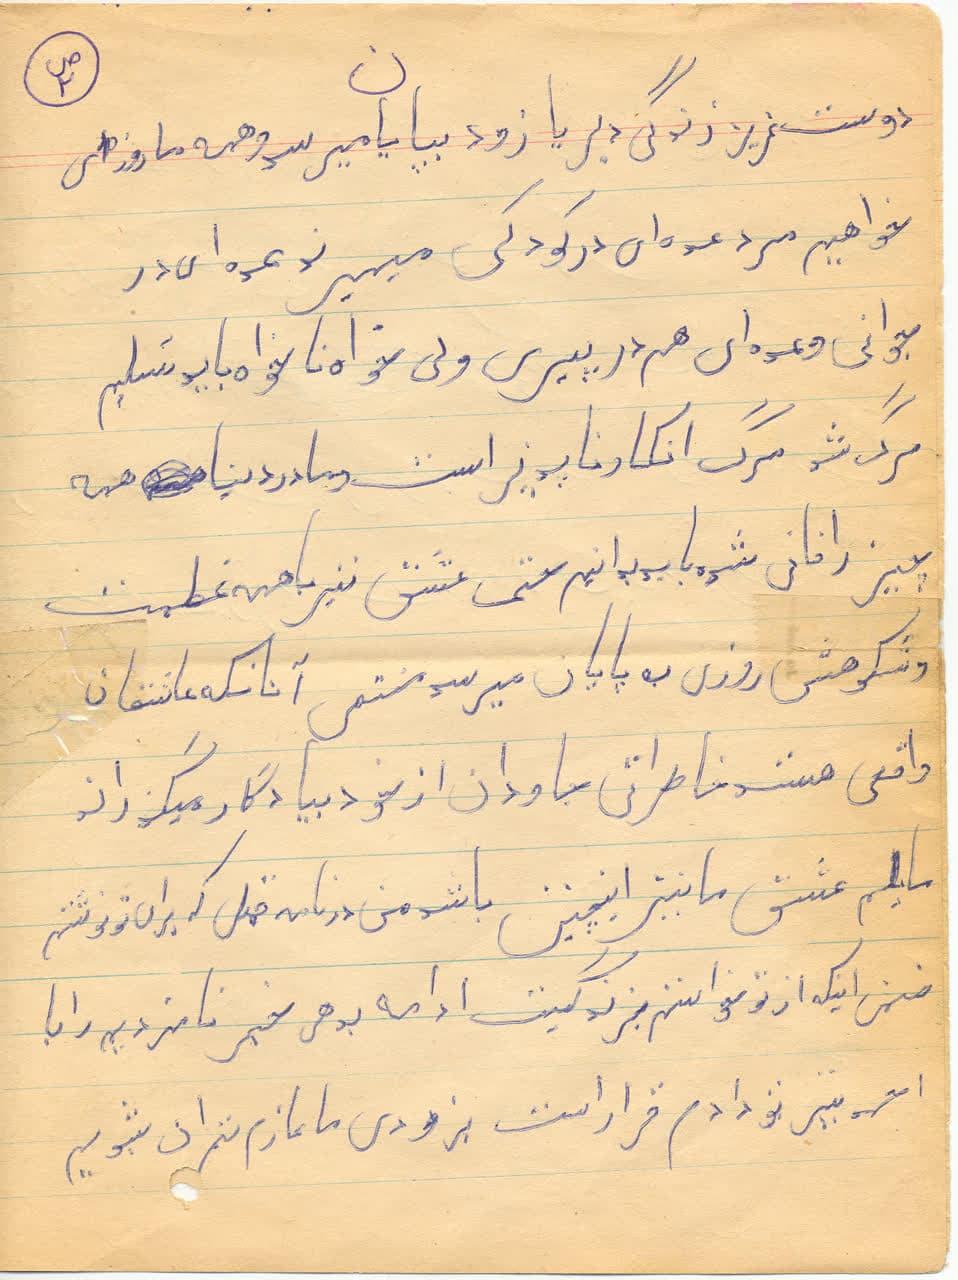 ص ۲
دوست عزیز زندگی دیر یا زود بپایان میرسد و همه ما روزی
خواهیم مرد عده ای در کودکی میمیرند عده ای در
جوانی و عده ای هم در پیری ولی خواه ناخواه باید تسلیم
مرگ شد مرگ انکار ناپذیر است و ما در دنیا همه
چیز را فانی شده باید بدانیم حتی عشق نیز با همه عظمت
و شکوهش روزی به پایان میرسد منتهی آنانکه عاشقان
واقعی هستند خاطراتی جاودان از خود بیادگار میگذارند
مایلم عشق ما نیز اینچنین باشد من در نامه قبلی که برای تو نوشتم
ضمن اینکه از تو خواستم بزندگیت ادامه بدهی خبر نامزدیم را با
نیز بتو دادم قرار است بزودی ما عازم تهران بشویم